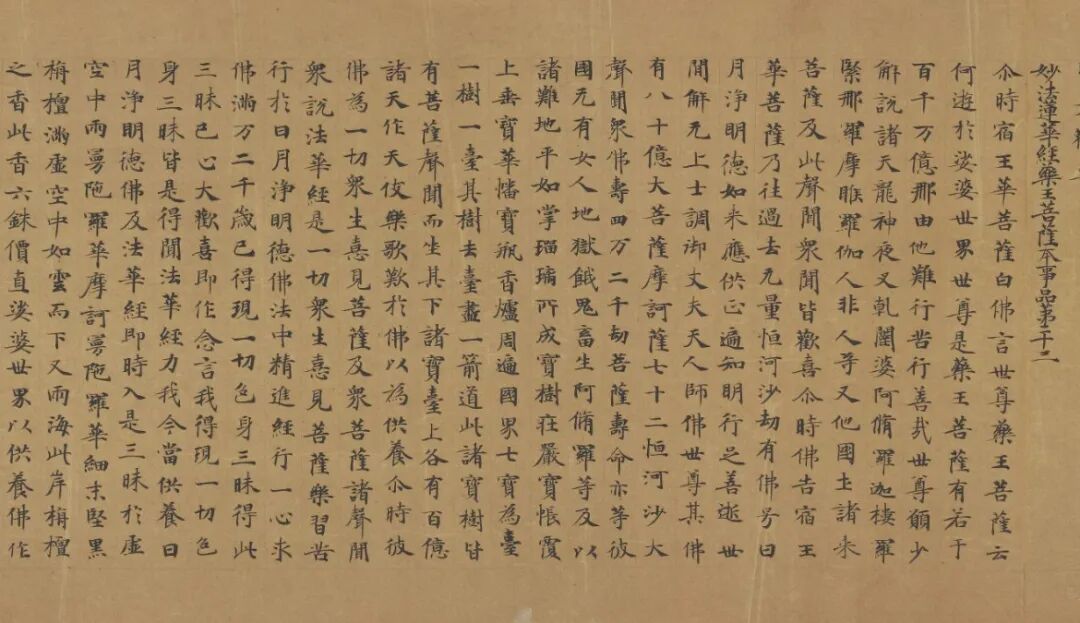 妙法蓮華經藥王菩薩本事品第二十二
尒時宿王華菩薩白佛言世尊藥王菩薩云
何遊於娑婆世界世尊是藥王菩薩有若干
百千万億那由他難行苦行善哉世尊願少
解說諸天龍神夜叉乹闥婆阿脩羅迦樓羅
緊那羅摩睺羅伽人非人等又他國土諸來
菩薩及此聲聞衆聞皆歡喜尒時佛告宿王
華菩薩乃往過去无量恒河沙劫有佛号曰
月淨明德如來應供正遍知明行足善逝世
間解无上士調御丈夫天人師佛世尊其佛
有八十億大菩薩摩訶薩七十二恒河沙大
聲聞衆佛壽四万二千劫菩薩壽命亦等彼
國无有女人地獄餓鬼畜生阿脩羅等及以
諸難地平如掌瑠璃所成寶樹莊嚴寶帳覆
上垂寶華幡寶瓶香爐周遍國界七寶為臺
一樹一臺其樹去臺盡一箭道此諸寶樹皆
有菩薩聲聞而坐其下諸寶臺上各有百億
諸天作天伎樂歌歎於佛以為供養尒時彼
佛為一切衆生憙見菩薩及衆菩薩諸聲聞
衆說法華經是一切衆生憙見菩薩樂習苦
行於日月淨明德佛法中精進經行一心求
佛滿万二千歲已得現一切色身三昧得此
三昧已心大歡喜即作念言我得現一切色
身三昧皆是得聞法華經力我今當供養日
月淨明德佛及法華經即時入是三昧於虛
空中雨曼陀羅華摩訶曼陀羅華細末堅黑
栴檀滿虛空中如雲而下又雨海此岸栴檀
之香此香六銖價直娑婆世界以供養佛作